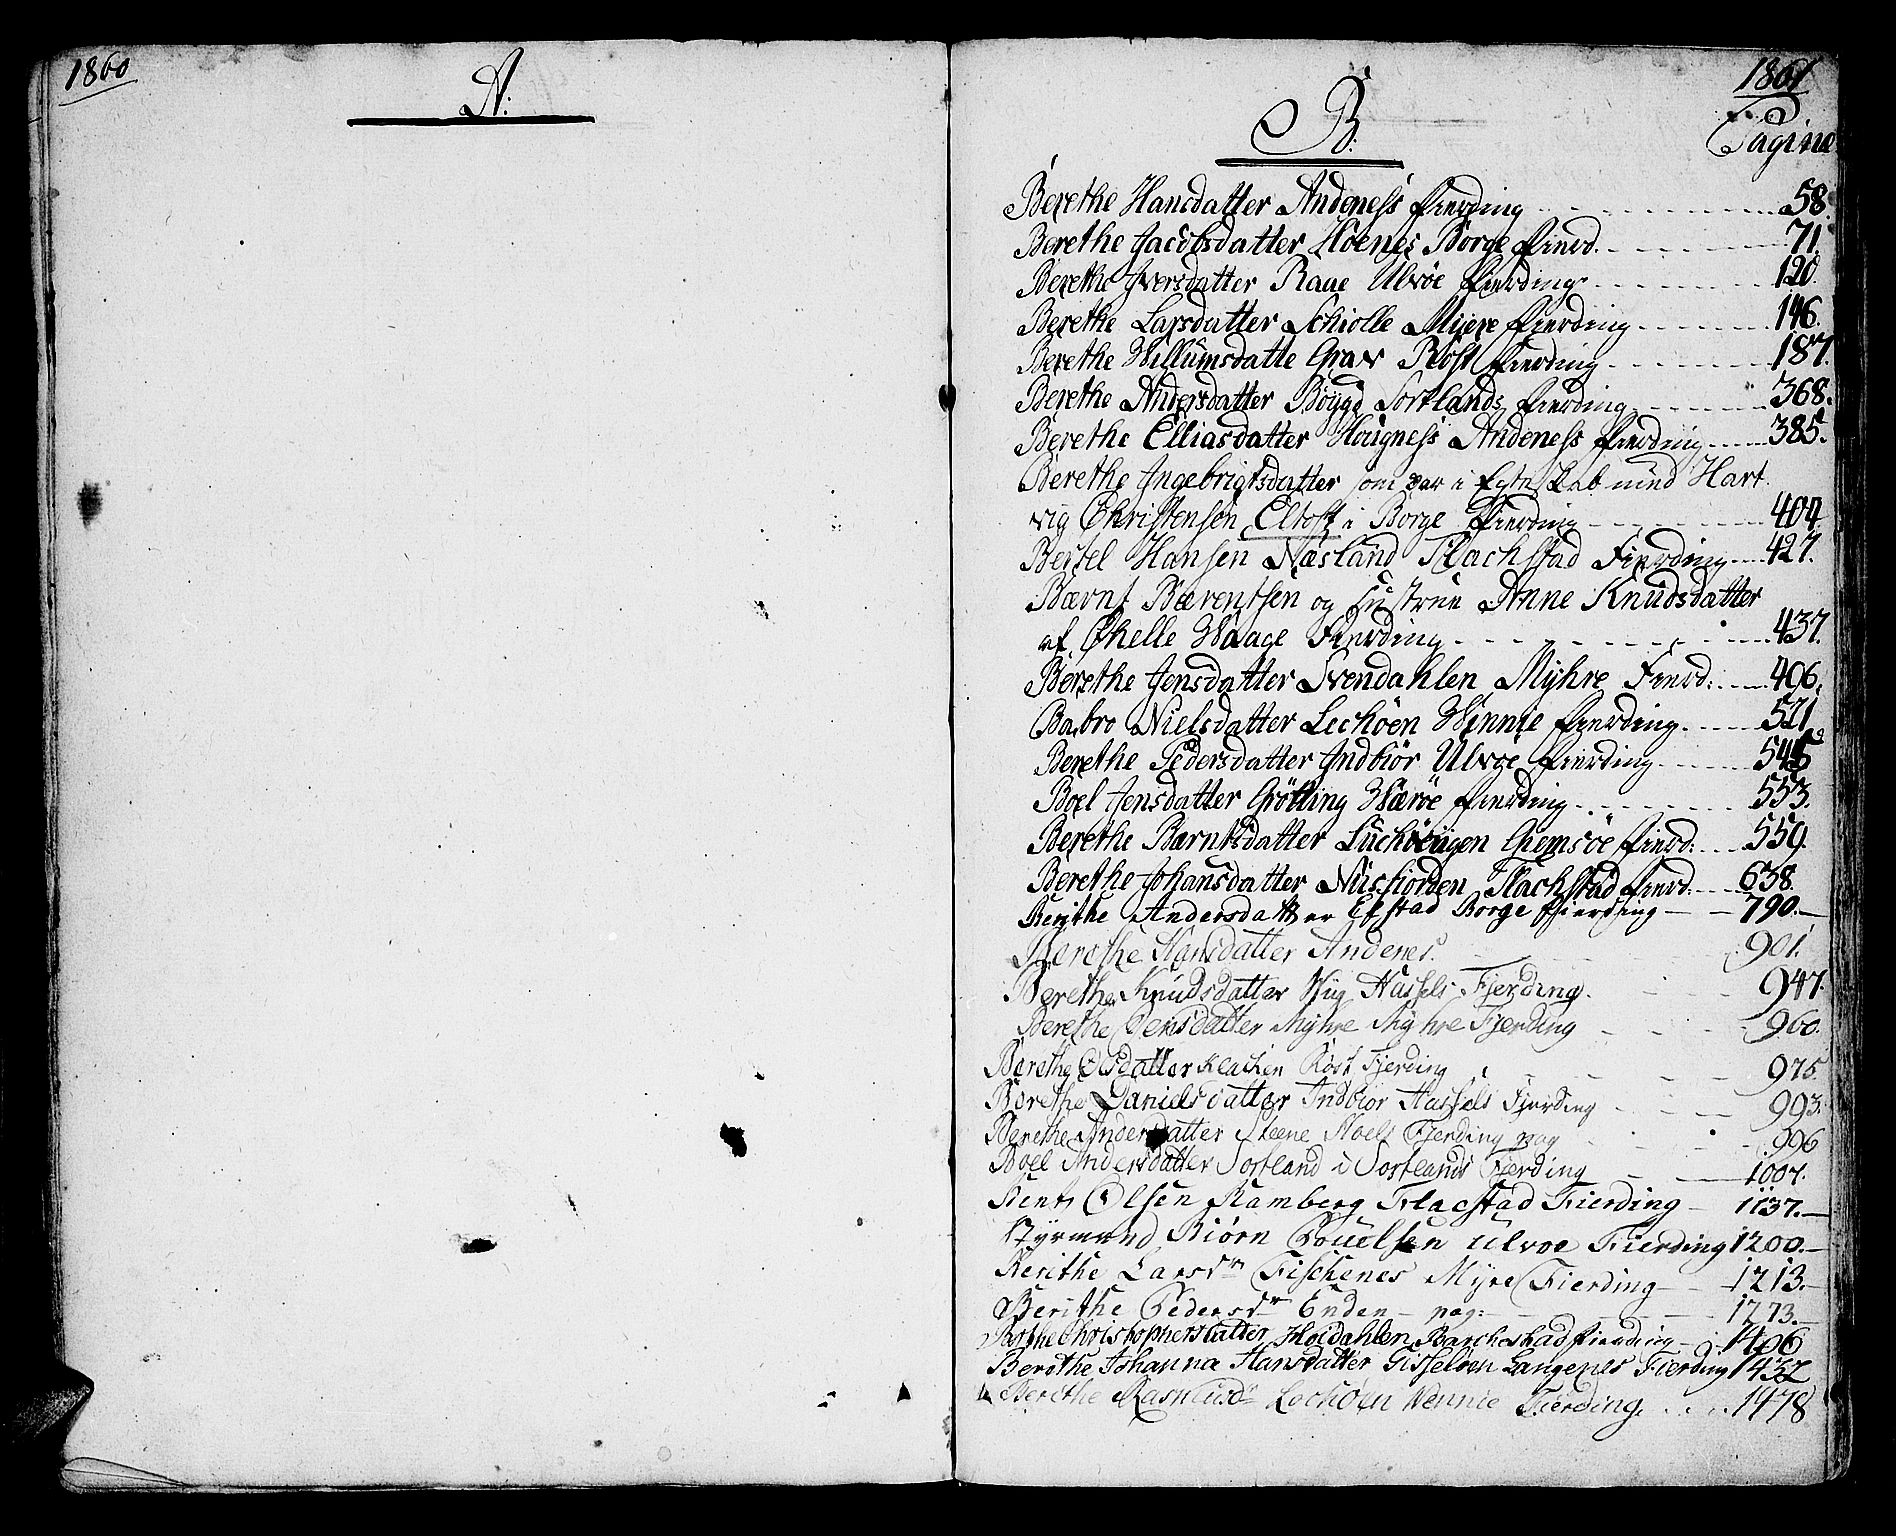 1860
A:
1861
B:
Pagina
Berethe Hansdatter Andeness fierding 58.
Berethe Jacobsdatter Hoenes Borge fierd. 71.
Berethe Iversdatter Raae Ulvøe fierding 120.
Berethe Larsdatter Schiolle Miere fierding 146.
Berethe Willumsdatte Grav Røst fierding 187.
Berethe Andersdatter Bøygd Sortlands fierding 368.
Berethe Elliasdatter Haugness Andeness fierding 385.
Berethe Ingebrigtsdatter som var i Egteskab med Hart
vig Christensen Eltoft i Borge fierding 404
Bertel Hansen Næsland Flachstad Fierding 427.
Bærnt Bærentsen og Hustrue Anne Knudsdatter
af Qhelle Waage Fierding 437.
Berethe Jensdatter Svendahlen Myhre Fierd: 406.
Babro Nielsdatter Lechøen Winnie fierding 521
Berethe Pedersdatter Indbiør Ulvøe fierding 545
Boel Jensdatter Grøtting Wærøe fierding 553.
Berethe Bærntsdatter Giemsøe fierd: 559.
Berethe Johansdatter Nusfiorden Flachstad fierd. 638.
Berithe Andersdatter Efstad Borge fierding 790.
Berethe Hansdatter Andenes. 901.
Berethe Knudsdatter Vig Hassels Fjerding. 947.
Berethe Jensdatter Myhre Myhre Fjerding 960.
Berethe Olsdatter Klacken Røst Fjerding 975.
Berethe Danielsdatter Indbior Hassels Fjerding 993.
Berethe Andersdatter Steene Fjerding pag 996
Boel Andersdatter Sortland i Sortlands Fjerding 1007.
Bent Olsen Ramberg Flacstad Fierding 1137.
Styrmand Biørn Pouelsen Ulvoe Fierding 1200.
Berithe Larsdr Fischenes Myre Fierding 1213.
Berithe Pedersdr Enden pag: 1273.
Christophersdatter Høidahlen Barchestad fierding 1406
Berethe Johanna Hansdatter Gisseløen Langenes Fierding 1432
Berethe Rasmusdr Lechøen Wennie Fierding 1478